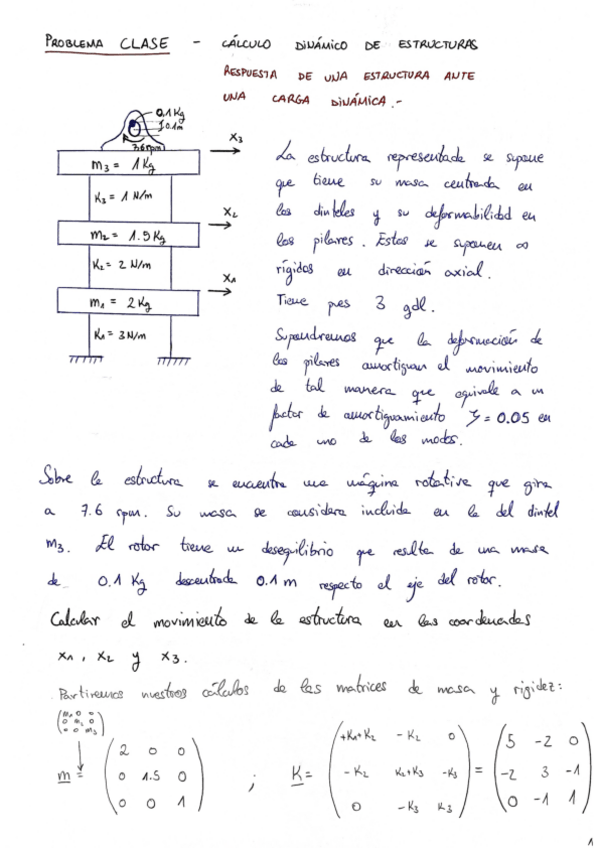 PROBLEMA CLASE - CÁLCULO DINÁMICO DE ESTRUCTURAS
RESPUESTA DE UNA ESTRUCTURA ANTE
UNA CARGA DINÁMICA.-
0.1 Kg
0.1m
7.6 rpm
m3 = 1 Kg
X3
K3 = 1 N/m
m2 = 1.5 Kg
X2
K2 = 2 N/m
m1 = 2 Kg
X1
K1 = 3 N/m
La estructura representada se supone
que tiene su masa centrada en
los dinteles y su deformabilidad en
los pilares. Estos se suponen ∞
rígidos en dirección axial.
Tiene pues 3 gdl.
Supondremos que la deformación de
los pilares amortiguan el movimiento
de tal manera que equivale a un
factor de amortiguamiento ζ = 0.05 en
cada uno de los modos.
Sobre la estructura se encuentra una máquina rotativa que gira
a 7.6 rpm. Su masa se considera incluida en la del dintel
m3. El rotor tiene un desequilibrio que resulta de una masa
de 0.1 Kg descentrada 0.1 m respecto el eje del rotor.
Calcular el movimiento de la estructura en las coordenadas
x1, x2 y x3.
Partiremos nuestros cálculos de las matrices de masa y rigidez:
(m1 0 0
0 m2 0
0 0 m3)
m = (2 0 0
0 1.5 0
0 0 1) ;
K = (+K1+K2 -K2 0
-K2 K2+K3 -K3
0 -K3 K3) =
(5 -2 0
-2 3 -1
0 -1 1)
1